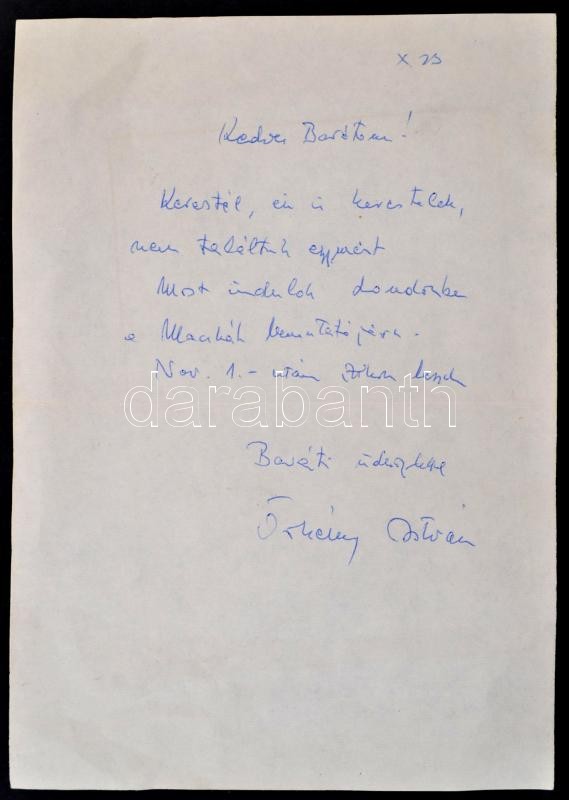 X 23
Kedves Barátom!
Kerestél, én is kerestelek,
nem találtuk egymást
Most indulok Londonba
a Macskák bemutatójára.
Nov. 1.- után itthon leszek
darabanth
Baráti üdvözlettel
Örkény István